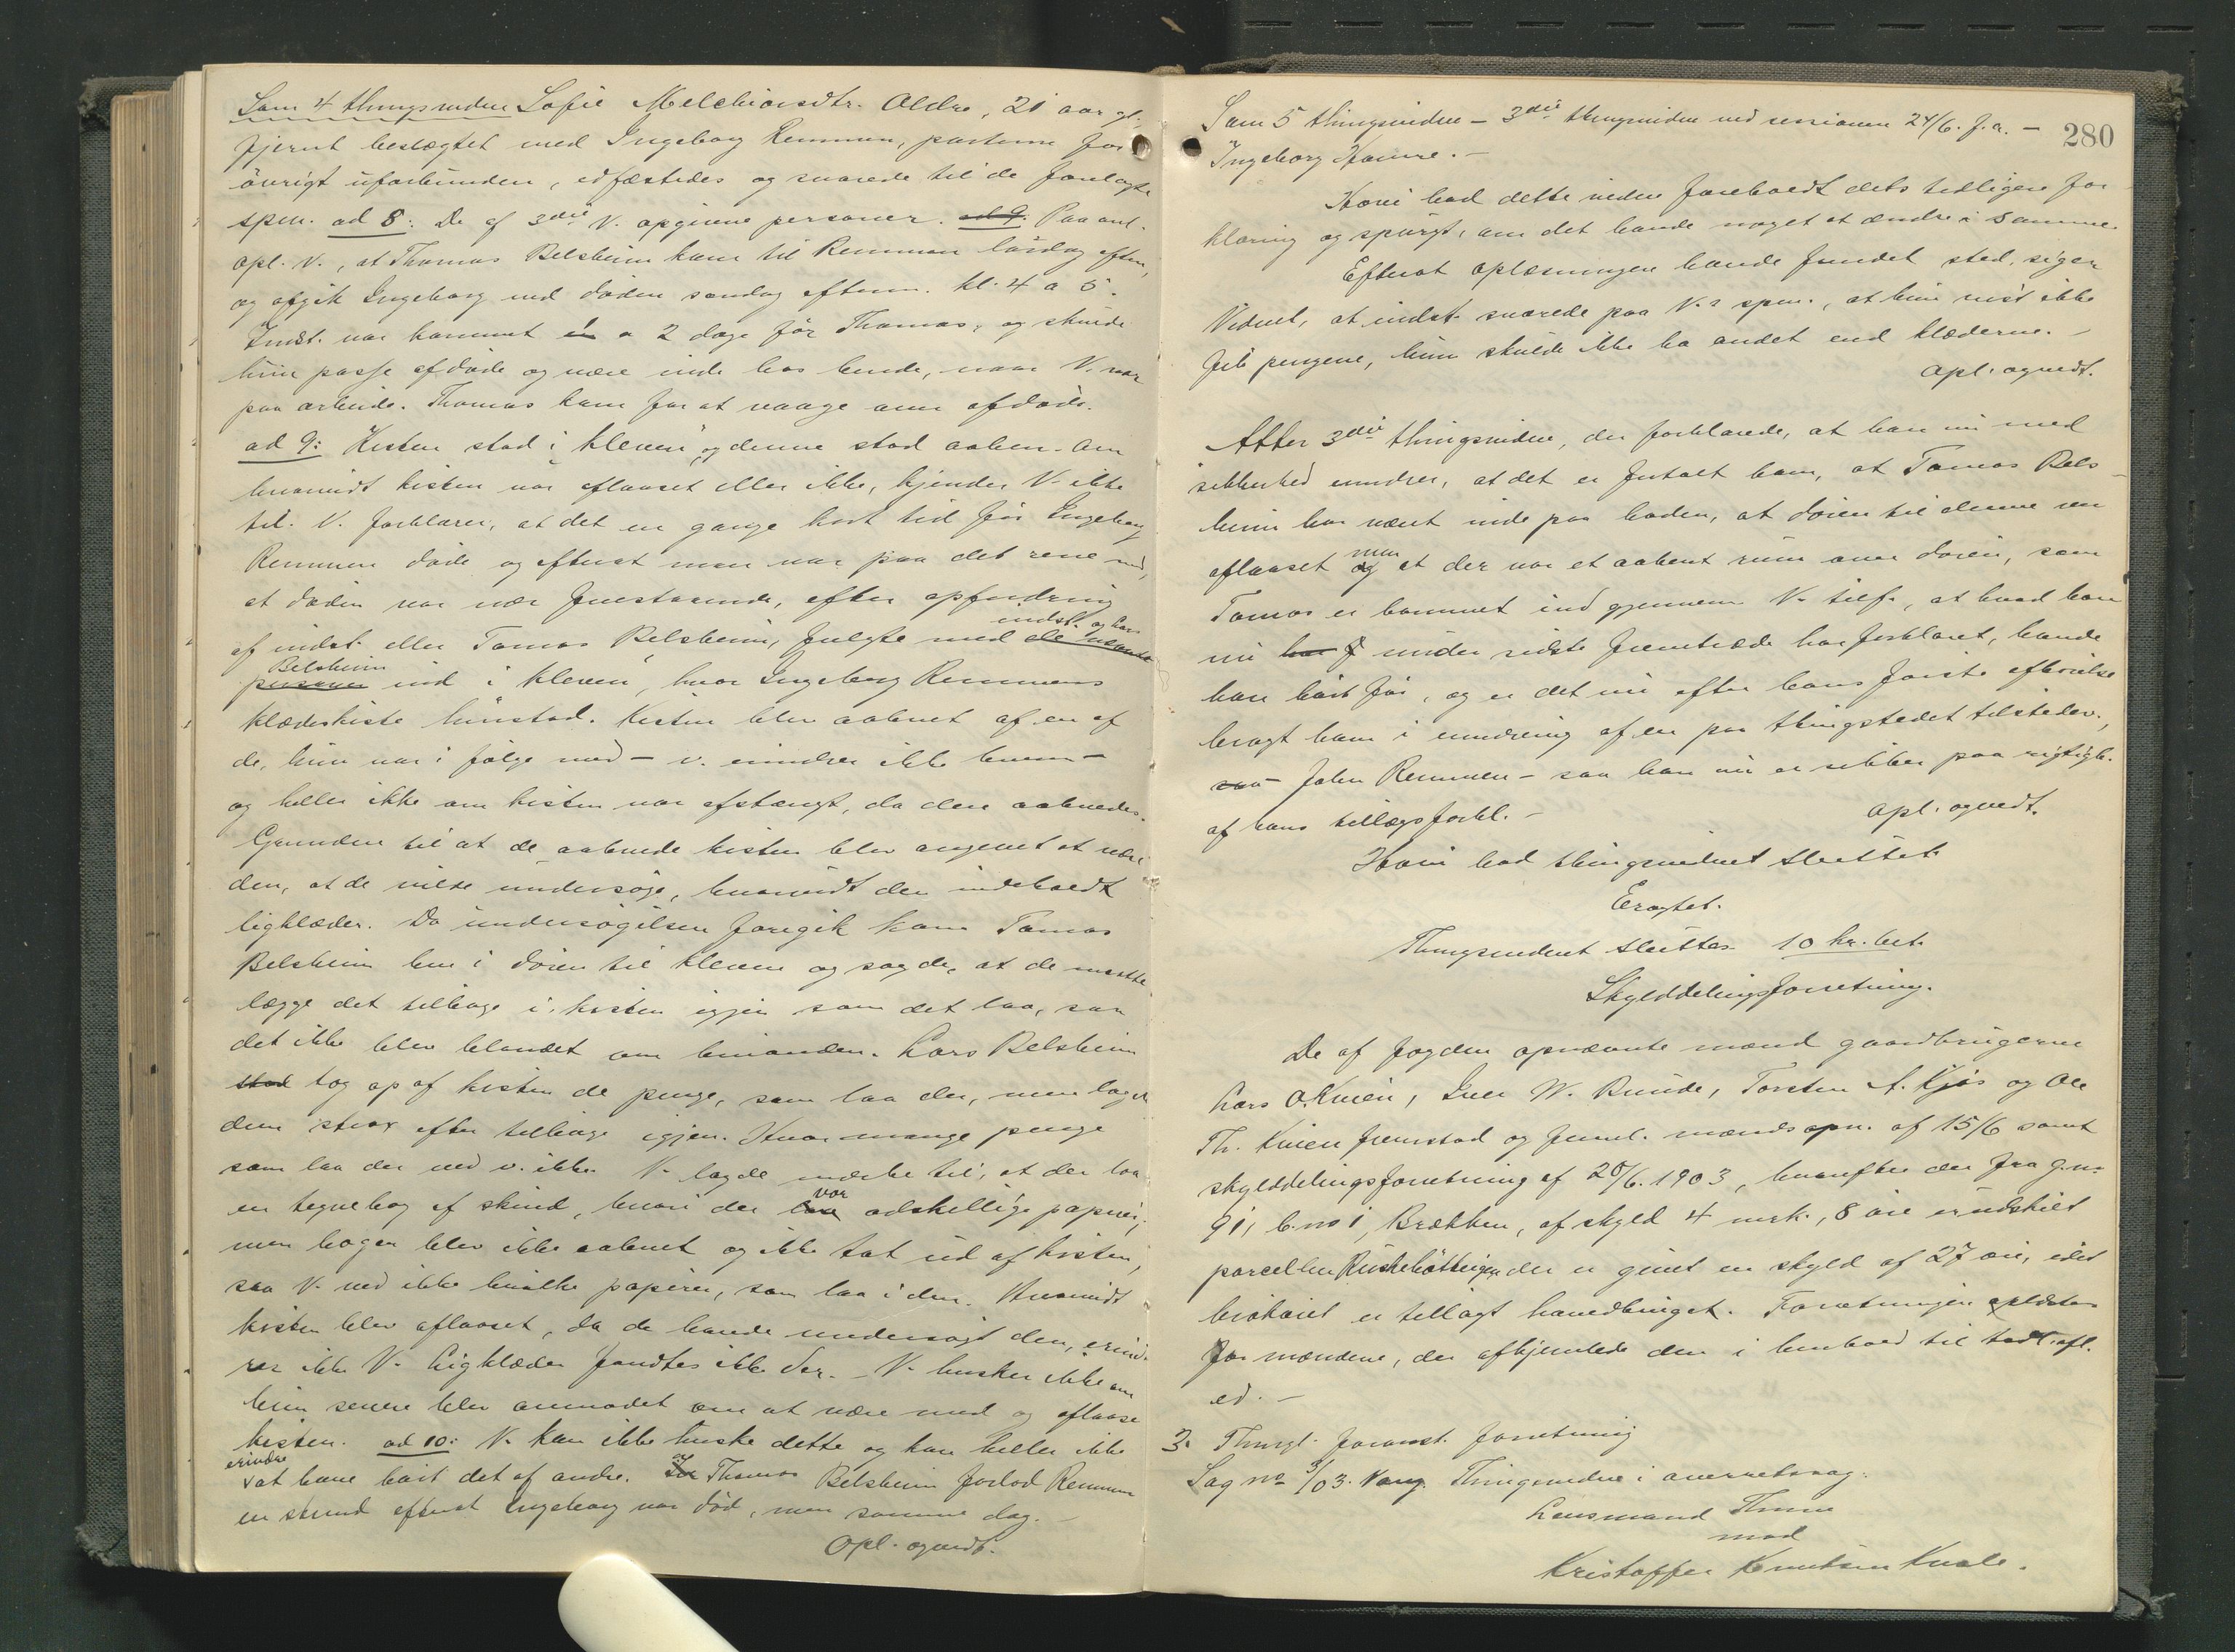 Som 4 thingsvidne Sofie Melchiorsdtr. Aldre, 21 aar gl.,
fjernt beslægtet med Ingeborg Remmen, parterne for
øvrigt uforbunden, edfæstedes og svarede til de forelagte
spm. ad 8: De af 3die V. opgivne personer. ad 9. Paa ant.
opl. V., at Thomas Belsheim kom til Remmen lørdag eftm.,
og afgik Ingeborg ved døden søndag efterm. kl. 4 a 5.
Indst. var kommet en a 2 dage før Thomas, og skulde
hun passe afdøde og være inde hos hende, naar V. var
paa arbeide. Thomas kom for at vaage over afdøde.
ad 9: Kisten stod i "kleven" og denne stod aaben. Om
hvorvidt kisten var aflaaset eller ikke, kjender V. ikke
til. V. forklarer, at det en gang kort tid før Ingeborg
Remmen døde og efterat man var paa det rene med,
at døden var nær forestaaende, efter opfordring
af indst. eller Tomas Belsheim, fulgte med de nævnte indst. og Lars
personer Belsheim ind i "kleven", hvor Ingeborg Remmens
klædeskiste henstod. Kisten blev aabnet af en af
de, hun var i følge med – v. erindrer ikke hvem –
og heller ikke om kisten var afstængt, da den aabnedes.
Grunden til at de aabnede kisten blev angivet at være
den, at de vilde undersøge, hvorvidt den indeholdt
ligklæder. Da undersøgelsen foregik kom Tomas
Belsheim hen i døren til kleven og sagde, at de maatte
lægge det tilbage i kisten igjen som det laa, saa
det ikke blev blandet om hinanden. Lars Belsheim
stod tog op af kisten de penge, som laa der, men lagde
dem strax efter tilbage igjen. Hvor mange penge
som laa der ved v. ikke. V. lagde mærke til, at der laa
en tegnebog af skind, hvori der laa var adskillige papirer,
men bogen blev ikke aabnet og ikke tat ud af kisten,
saa V. ved ikke hvilke papirer, som laa i den. Hvorvidt
kisten blev aflaaset, da de havde undersøgt den, erind-
rer ikke V. Ligklæder fandtes ikke der. – V. husker ikke om
hun senere blev anmodet om at være med og aflaase
kisten. ad 10: V. kan ikke huske dette og kan heller ikke
erindre at have hørt det af andre. Thomas Belsheim forlod Remmen
en stund efterat Ingeborg var død, men samme dag. –
Opl. ogvedt.
280
Som 5 thingsvidne – 3die thingsvidne ved sessionen 24/6. f. a. –
Ingeborg Hamre. –
Hovi bad dette vidne foreholdt dets tidligere for-
klaring og spurgt, om det havde noget at ændre i samme.
Efterat oplæsningen havde fundet sted, siger
Vidnet, at indst. svarede paa V.s spm., at hun vist ikke
fik pengene, hun skulde ikke ha andet end klæderne. –
opl. ogvedt.
Atter 3die thingsvidne, der forklarede, at han nu med
sikkerhed erindrer, at det er fortalt ham, at Tomas Bels-
heim har været inde paa boden, at døren til denne var
aflaaset og men at der var et aabent rum over døren, som
Tomas er kommet ind gjennem. V. tilf., at hvad han
nu har f under sidste fremtræde har forklaret, havde
han hørt før, og er det nu efter hans første afhørelse
bragt ham i erindring af en paa thingstedet tilstedev.,
saa – John Remmen – saa han nu er sikker paa rigtigh.
af hans tillægsforkl. –
opl. ogvedt.
Hovi bad thingsvidnet sluttet.
Eragtet.
Thingsvidnet sluttes. 10 kr. bet.
Skylddelingsforretning.
De af fogden opnævnte mænd gaardbrugerne
Lars O. Kvien, Iver W. Runde, Torsten A. Kjøs og Ole
Th. Kvien fremstod og freml. mændsopn. af 15/6 samt
skylddelingsforretning af 20/6. 1903, hvorefter der fra g.no
91, b.no 1, Brækken, af skyld 4 mrk., 8 øre er udskilt
parcellen Ruskebøtteigen, der er givet en skyld af 27 øre, idet
brøkøret er tillagt hovedbruget. Forretningen oplæstes
for mændene, der afhjemlede den i henhold til tidl. afl.
ed. –
3. Thingl. foranst. forretning
Sag no 3/03. Vang. Thingsvidne i overretssag:
Lensmand Thune
mod
Kristoffer Knutsen Kvale.